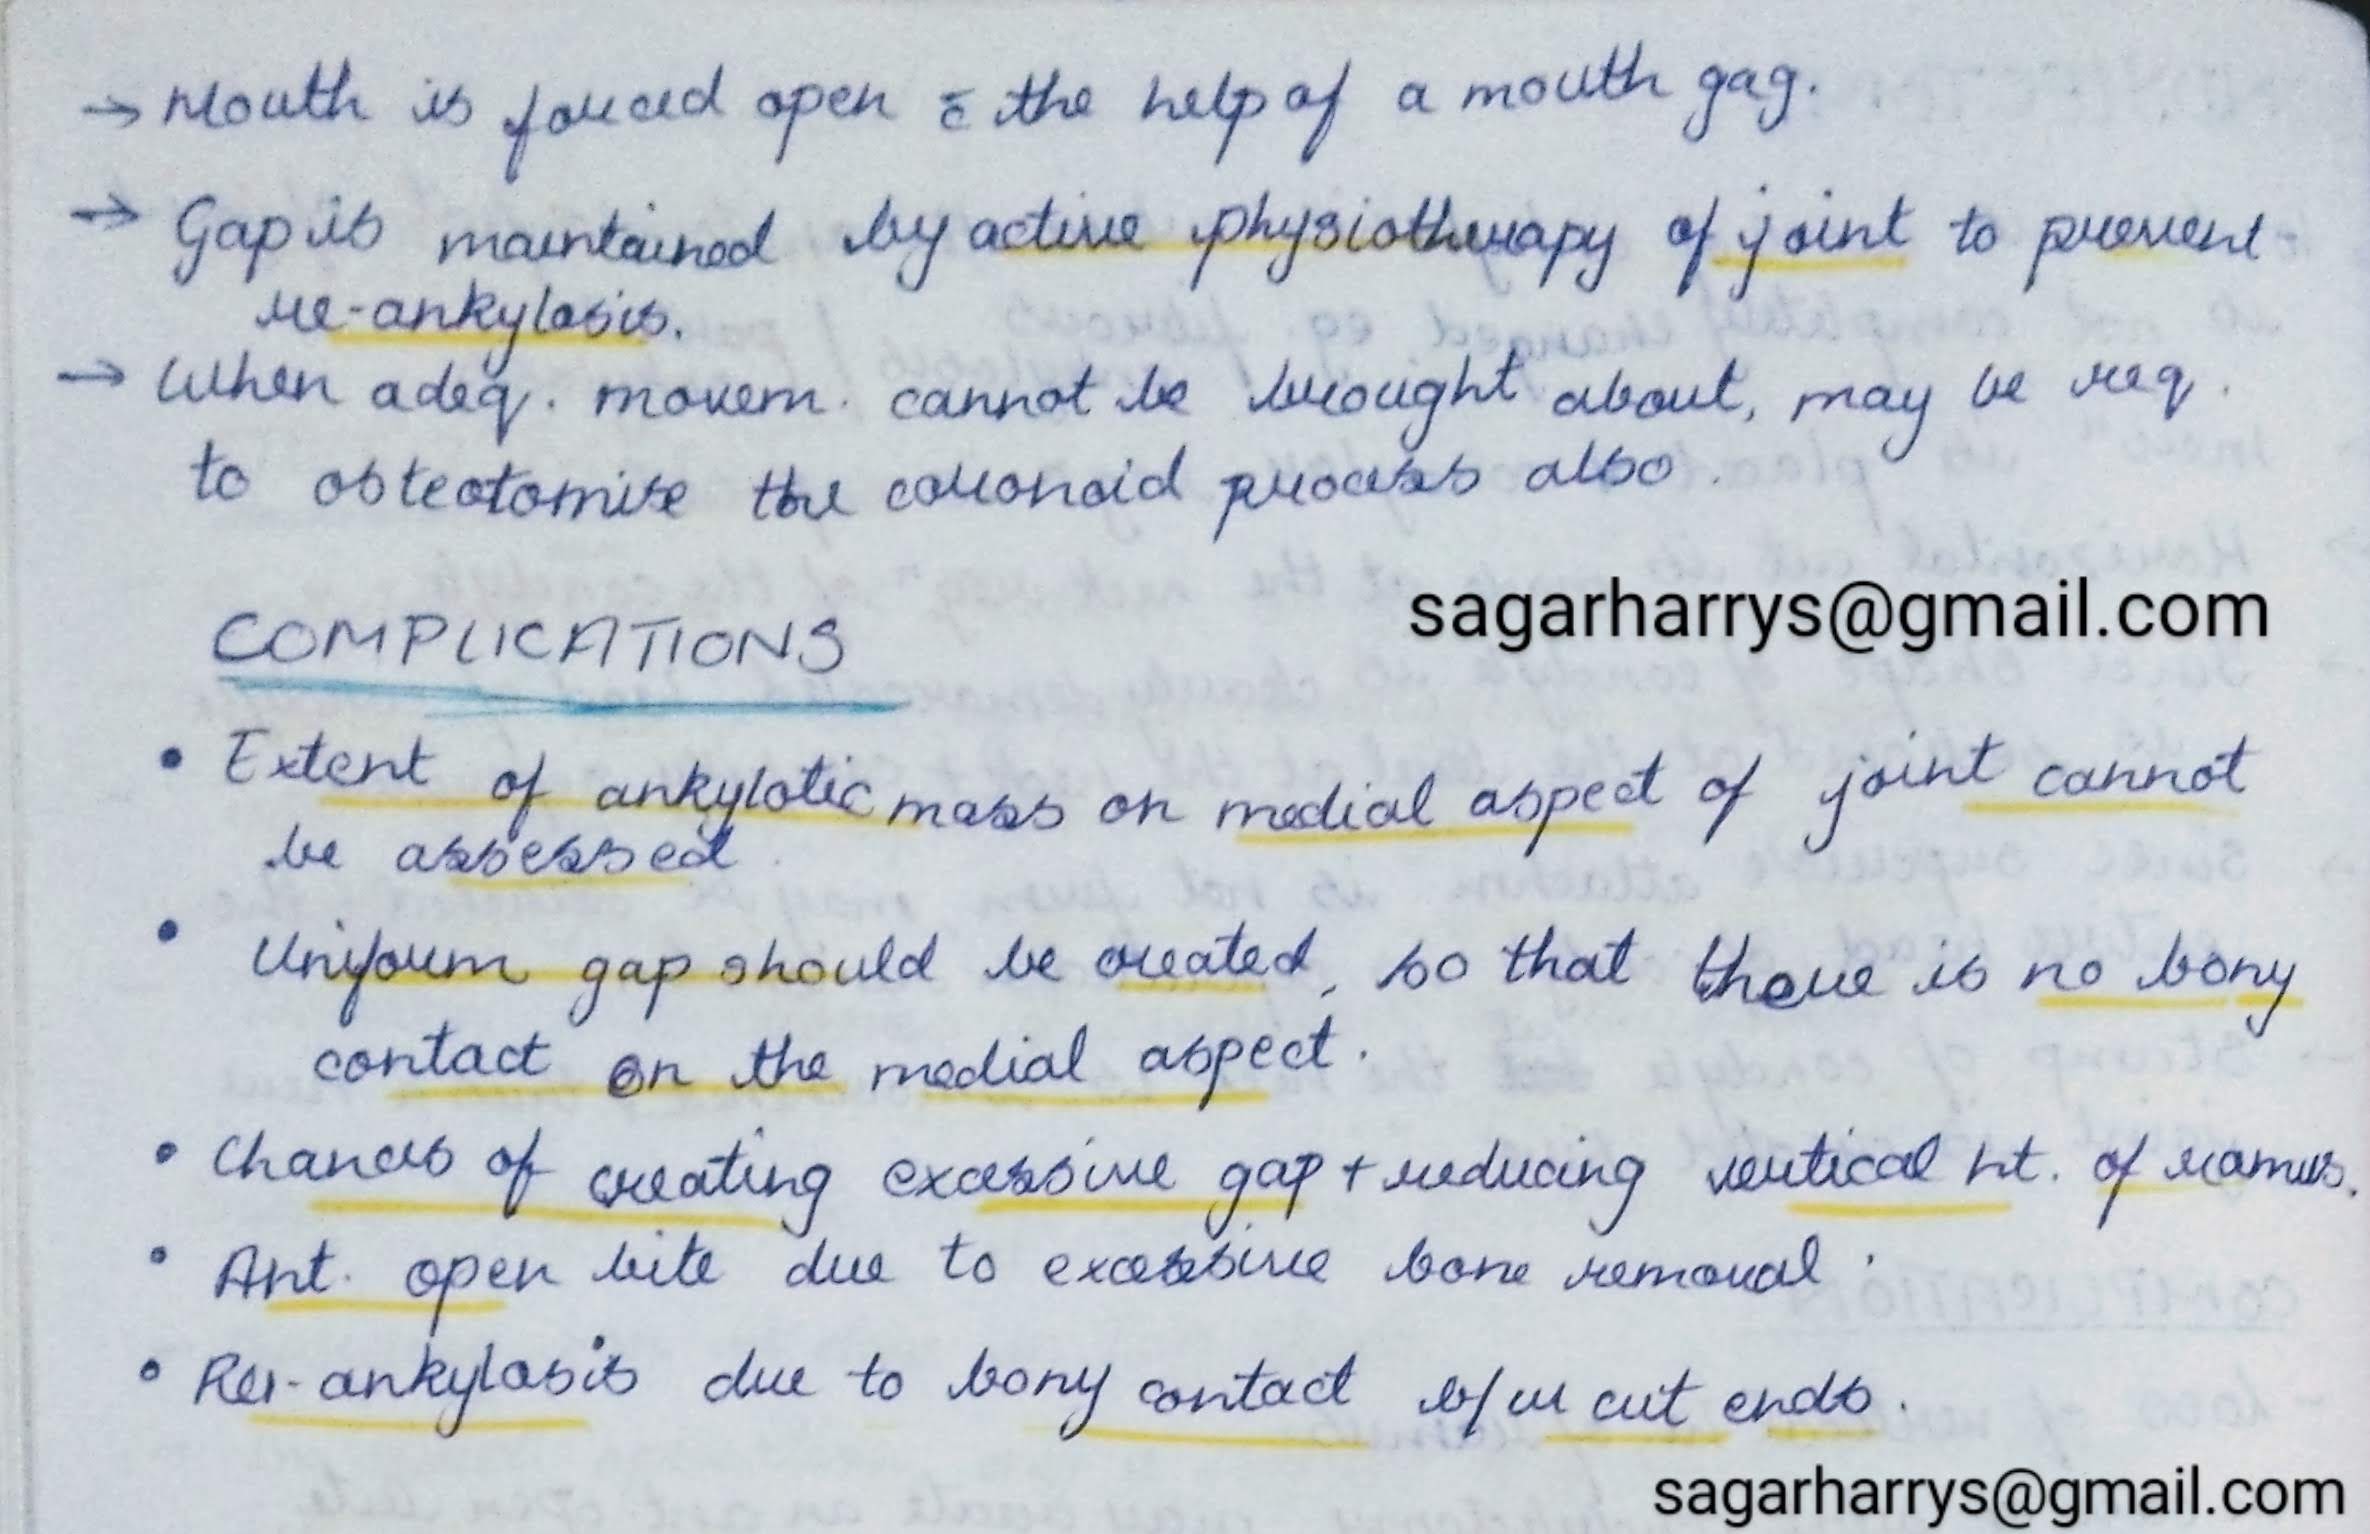 → Mouth is forced open c̄ the help of a mouth gag.
→ Gap is maintained by active physiotherapy of joint to prevent
re-ankylosis.
→ When adeq. movem. cannot be brought about, may be req.
to osteotomise the coronoid process also.
sagarharrys@gmail.com
COMPLICATIONS
• Extent of ankylotic mass on medial aspect of joint cannot
be assessed.
• Uniform gap should be created, so that there is no bony
contact on the medial aspect.
• Chances of creating excessive gap + reducing vertical ht. of ramus.
• Ant. open bite due to excessive bone removal.
• Re-ankylosis due to bony contact b/w cut ends.
sagarharrys@gmail.com